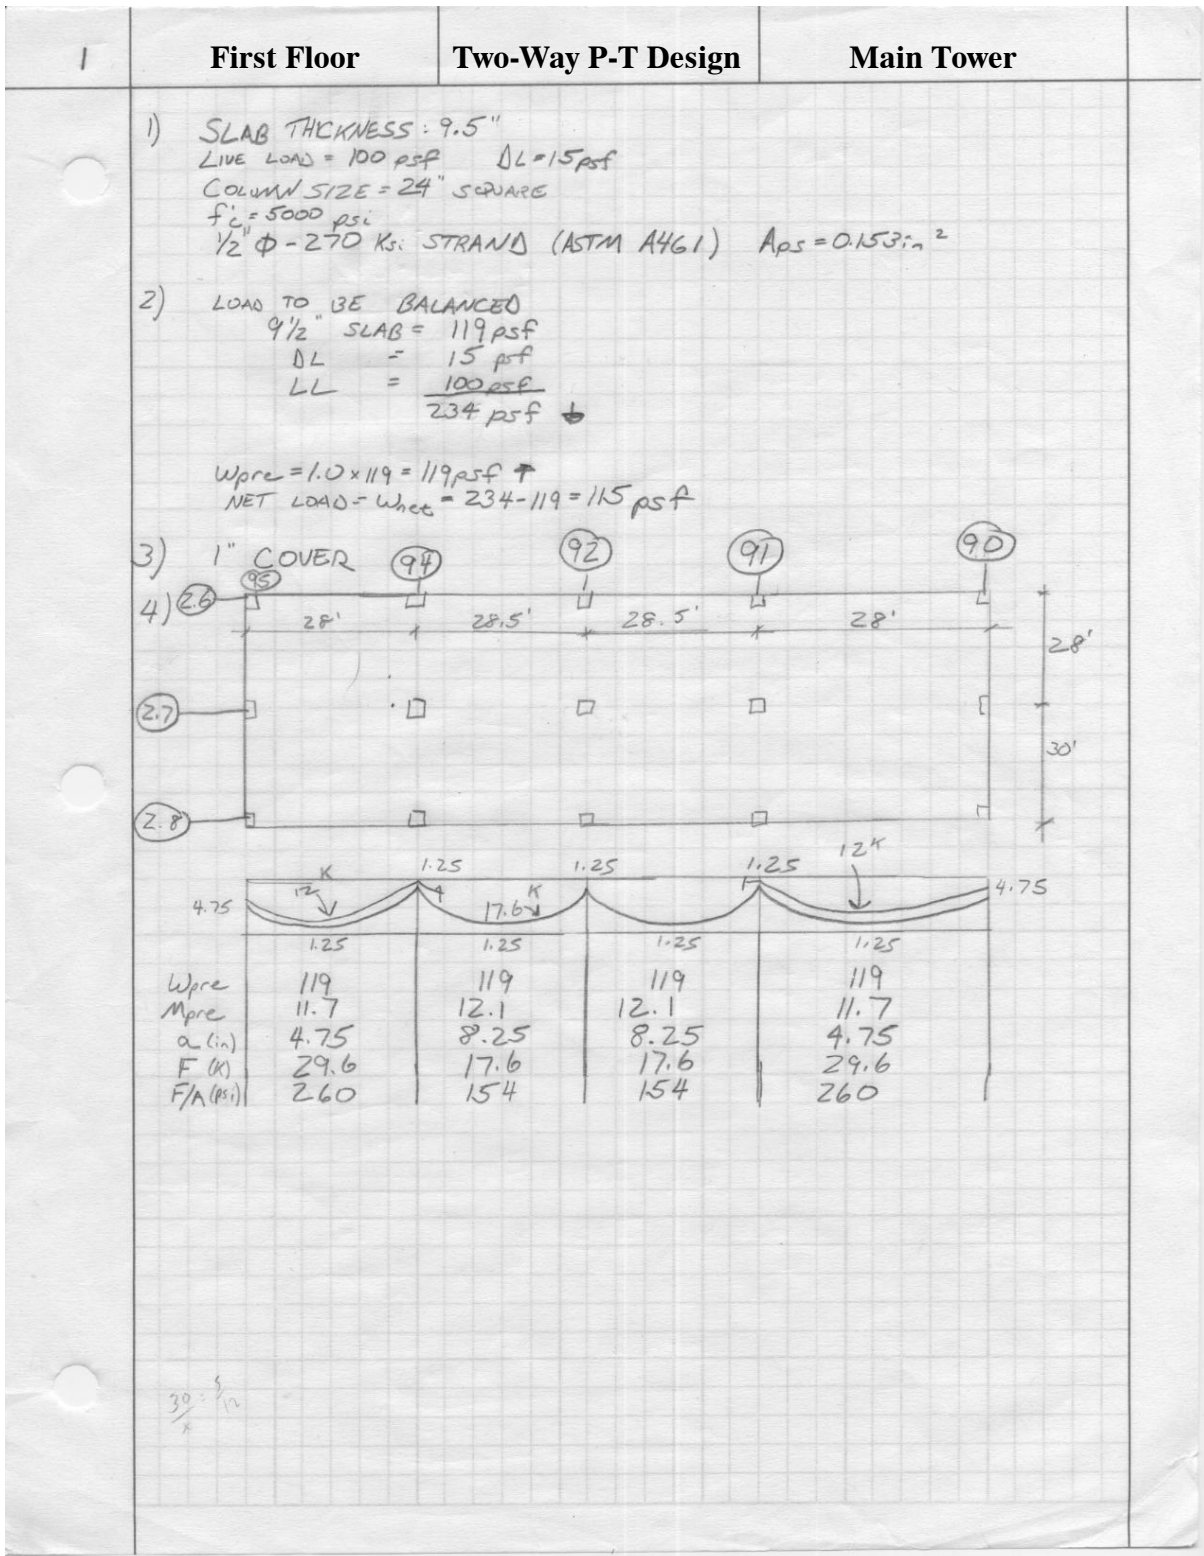 1 First Floor Two-Way P-T Design Main Tower
1) SLAB THICKNESS: 9.5"
LIVE LOAD = 100 psf DL=15psf
COLUMN SIZE = 24" SQUARE
f'c = 5000 psi
1/2" Φ - 270 Ksi STRAND (ASTM A461) Aps = 0.153in²
2) LOAD TO BE BALANCED
9 1/2" SLAB = 119 psf
DL = 15 psf
LL = 100 psf
234 psf ↓
Wpre = 1.0 x 119 = 119psf ↑
NET LOAD = Wnet = 234-119 = 115 psf
3) 1" COVER
95 94 92 91 90
4) 2.6
28' 28.5' 28.5' 28'
28'
2.7
30'
2.8
1.25 1.25 1.25
12K 17.6K 12K
4.75 4.75
1.25 1.25 1.25 1.25
Wpre 119 119 119 119
Mpre 11.7 12.1 12.1 11.7
a (in) 4.75 8.25 8.25 4.75
F (K) 29.6 17.6 17.6 29.6
F/A (psi) 260 154 154 260
30/x = 5/12